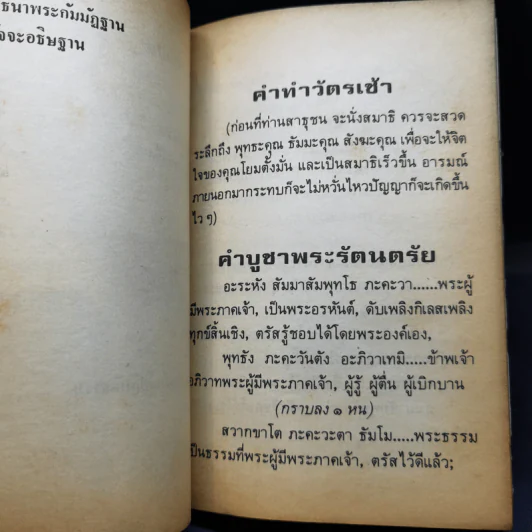 ธนาพระกัมมัฏฐาน
จจะอธิษฐาน
คำทำวัตรเช้า
(ก่อนที่ท่านสาธุชน จะนั่งสมาธิ ควรจะสวด
ระลึกถึง พุทธะคุณ ธัมมะคุณ สังฆะคุณ เพื่อจะให้จิต
ใจของคุณโยมตั้งมั่น และเป็นสมาธิเร็วขึ้น อารมณ์
ภายนอกมากระทบก็จะไม่หวั่นไหวปัญญาก็จะเกิดขึ้น
ไว ๆ)
คำบูชาพระรัตนตรัย
อะระหัง สัมมาสัมพุทโธ ภะคะวา......พระผู้
มีพระภาคเจ้า, เป็นพระอรหันต์, ดับเพลิงกิเลสเพลิง
ทุกข์สิ้นเชิง, ตรัสรู้ชอบได้โดยพระองค์เอง,
พุทธัง ภะคะวันตัง อะภิวาเทมิ.....ข้าพเจ้า
อภิวาทพระผู้มีพระภาคเจ้า, ผู้รู้ ผู้ตื่น ผู้เบิกบาน
(กราบลง ๑ หน)
สวากขาโต ภะคะวะตา ธัมโม.....พระธรรม
เป็นธรรมที่พระผู้มีพระภาคเจ้า, ตรัสไว้ดีแล้ว;